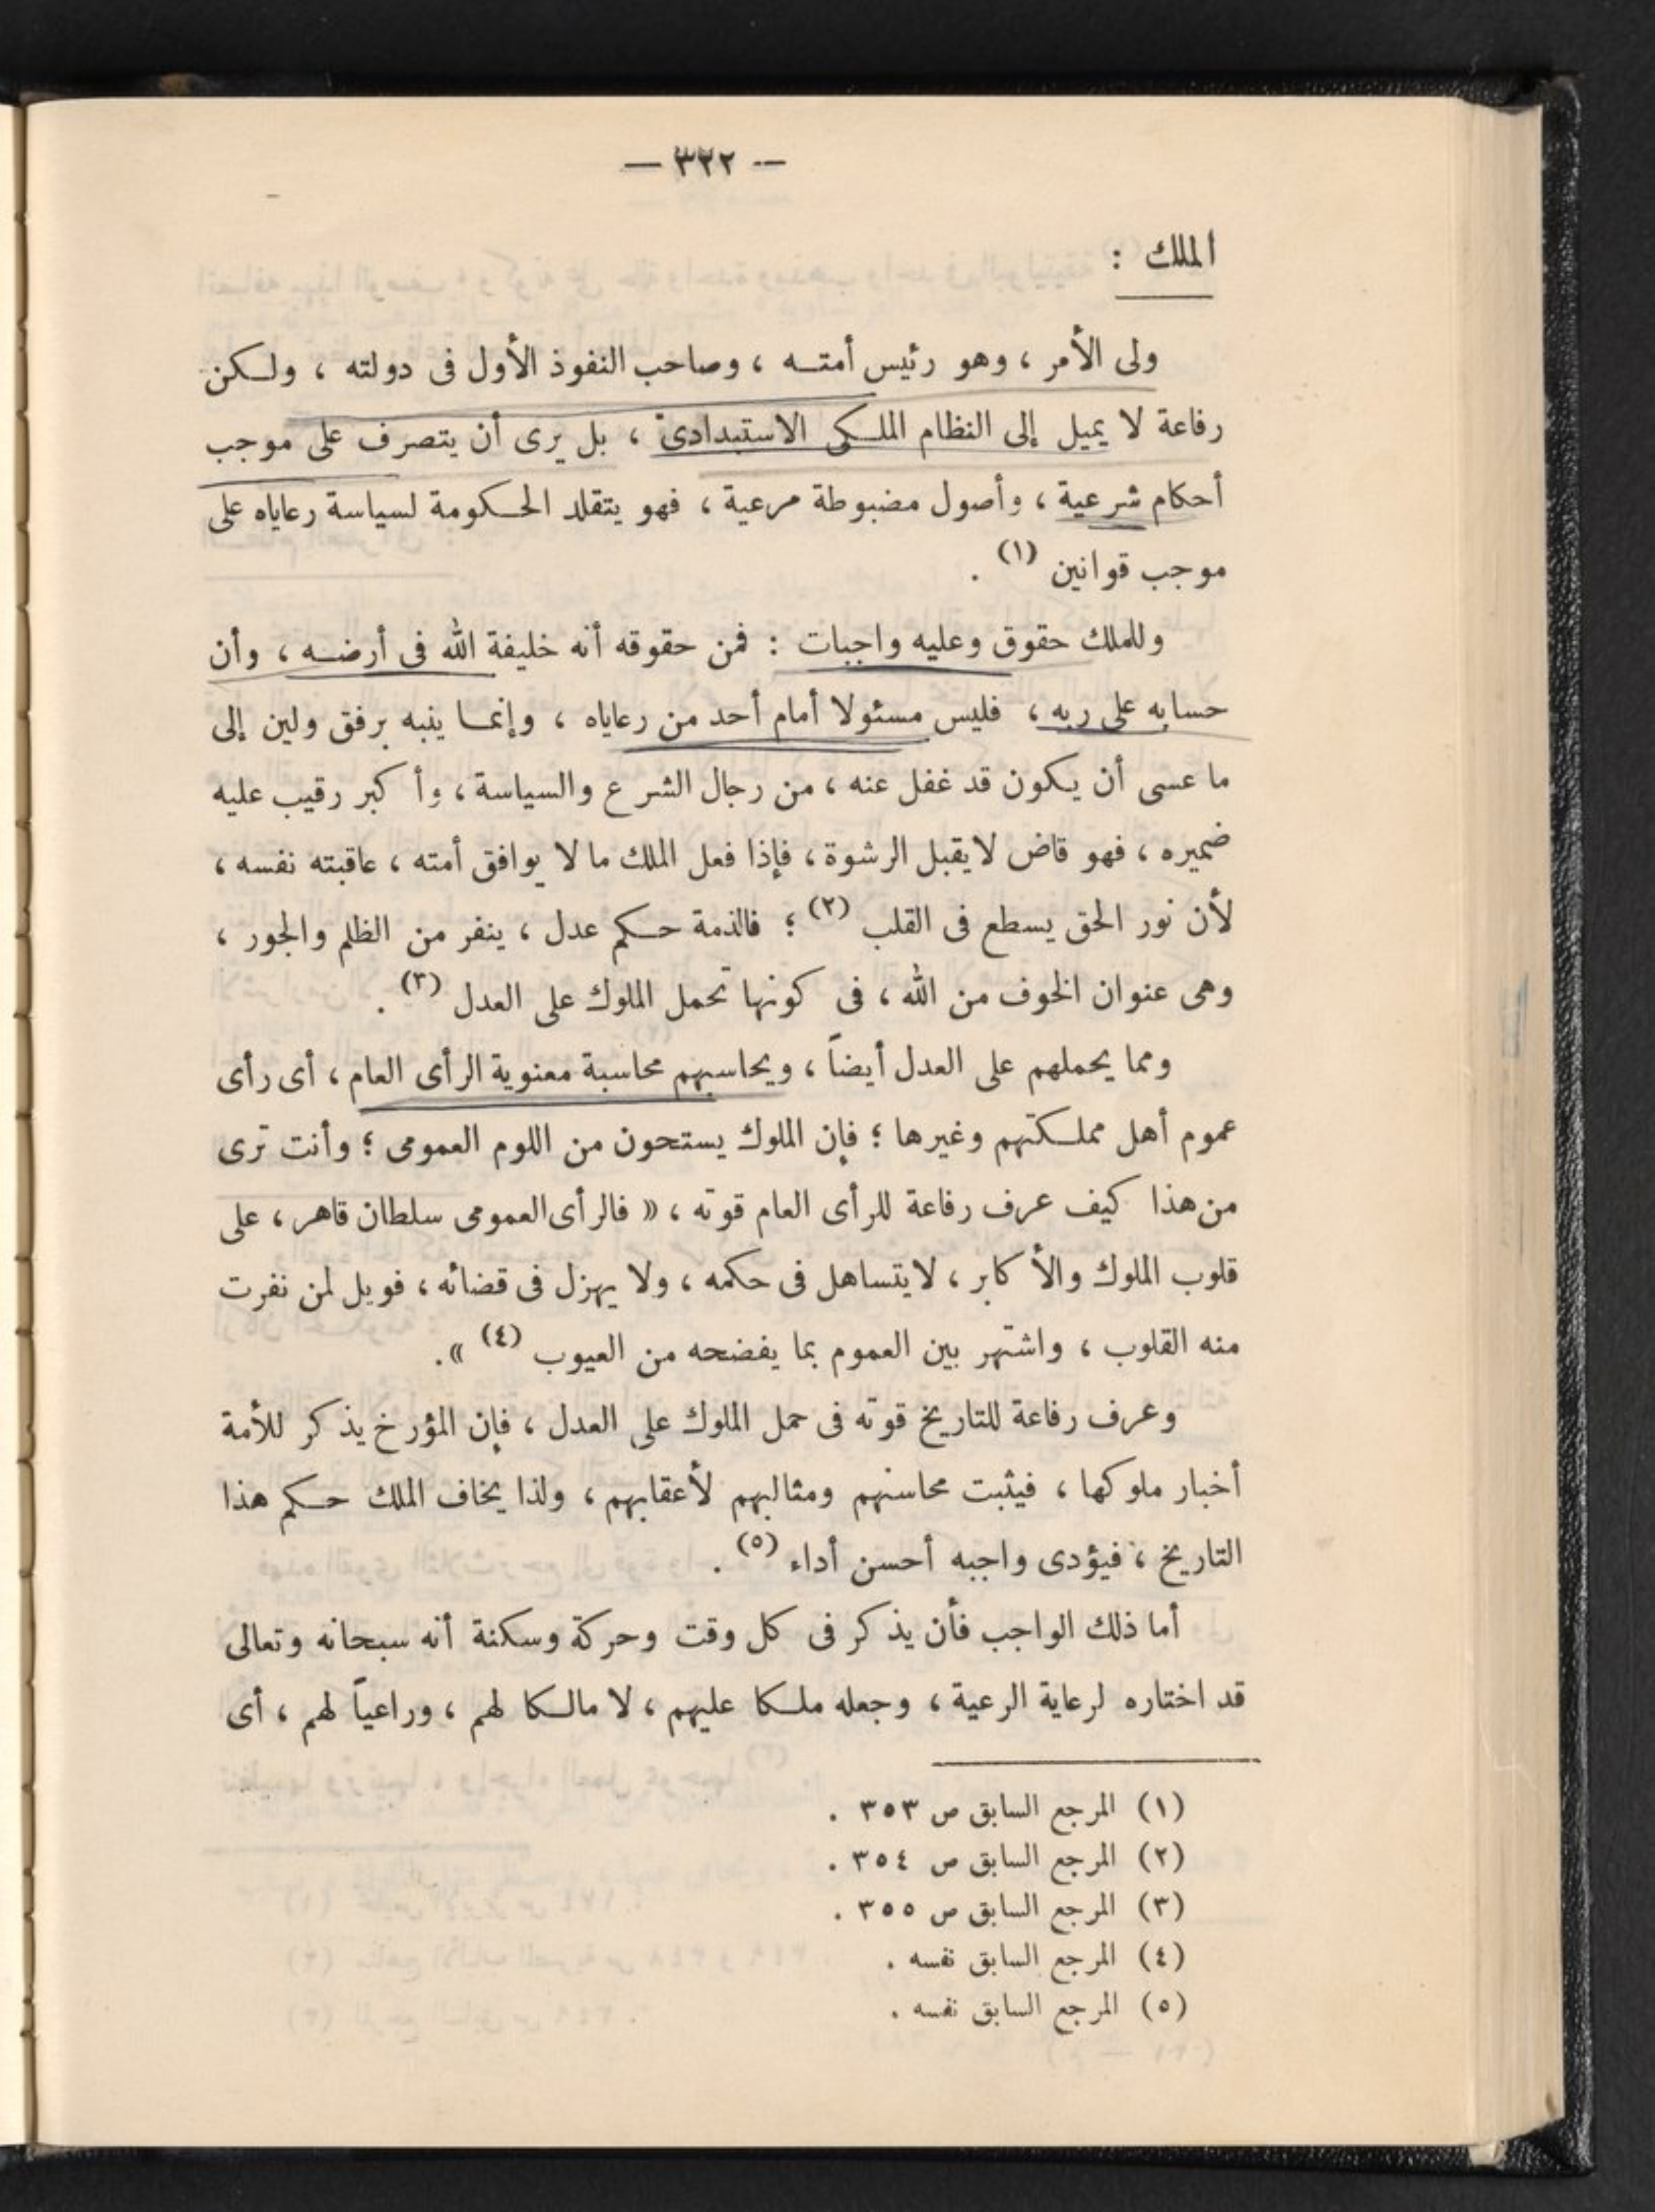 — ٣٢٢ —
الملك :
ولى الأمر ، وهو رئيس أمته ، وصاحب النفوذ الأول فى دولته ، ولكن
رفاعة لا يميل إلى النظام الملكى الاستبدادى ، بل يرى أن يتصرف على موجب
أحكام شرعية ، وأصول مضبوطة مرعية ، فهو يتقلد الحكومة لسياسة رعاياه على
موجب قوانين (١) .
وللملك حقوق وعليه واجبات : فمن حقوقه أنه خليفة الله فى أرضه ، وأن
حسابه على ربه ، فليس مسئولا أمام أحد من رعاياه ، وإنما ينبه برفق ولين إلى
ما عسى أن يكون قد غفل عنه ، من رجال الشرع والسياسة ، وأكبر رقيب عليه
ضميره ، فهو قاض لا يقبل الرشوة ، فإذا فعل الملك ما لا يوافق أمته ، عاقبته نفسه ،
لأن نور الحق يسطع فى القلب (٢) ؛ فالذمة حكم عدل ، ينفر من الظلم والجور ،
وهى عنوان الخوف من الله ، فى كونها تحمل الملوك على العدل (٣) .
ومما يحملهم على العدل أيضاً ، ويحاسبهم محاسبة معنوية الرأى العام ، أى رأى
عموم أهل مملكتهم وغيرها ؛ فإن الملوك يستحون من اللوم العمومى ؛ وأنت ترى
من هذا كيف عرف رفاعة للرأى العام قوته ، « فالرأى العمومى سلطان قاهر ، على
قلوب الملوك والأكابر ، لا يتساهل فى حكمه ، ولا يهزل فى قضائه ، فويل لمن نفرت
منه القلوب ، واشتهر بين العموم بما يفضحه من العيوب (٤) » .
وعرف رفاعة للتاريخ قوته فى حمل الملوك على العدل ، فإن المؤرخ يذكر للأمة
أخبار ملوكها ، فيثبت محاسنهم ومثالبهم لأعقابهم ، ولذا يخاف الملك حكم هذا
التاريخ ، فيؤدى واجبه أحسن أداء (٥) .
أما ذلك الواجب فأن يذكر فى كل وقت وحركة وسكنة أنه سبحانه وتعالى
قد اختاره لرعاية الرعية ، وجعله ملكا عليهم ، لا مالكا لهم ، وراعياً لهم ، أى
(١) المرجع السابق ص ٣٥٣ .
(٢) المرجع السابق ص ٣٥٤ .
(٣) المرجع السابق ص ٣٥٥ .
(٤) المرجع السابق نفسه .
(٥) المرجع السابق نفسه .